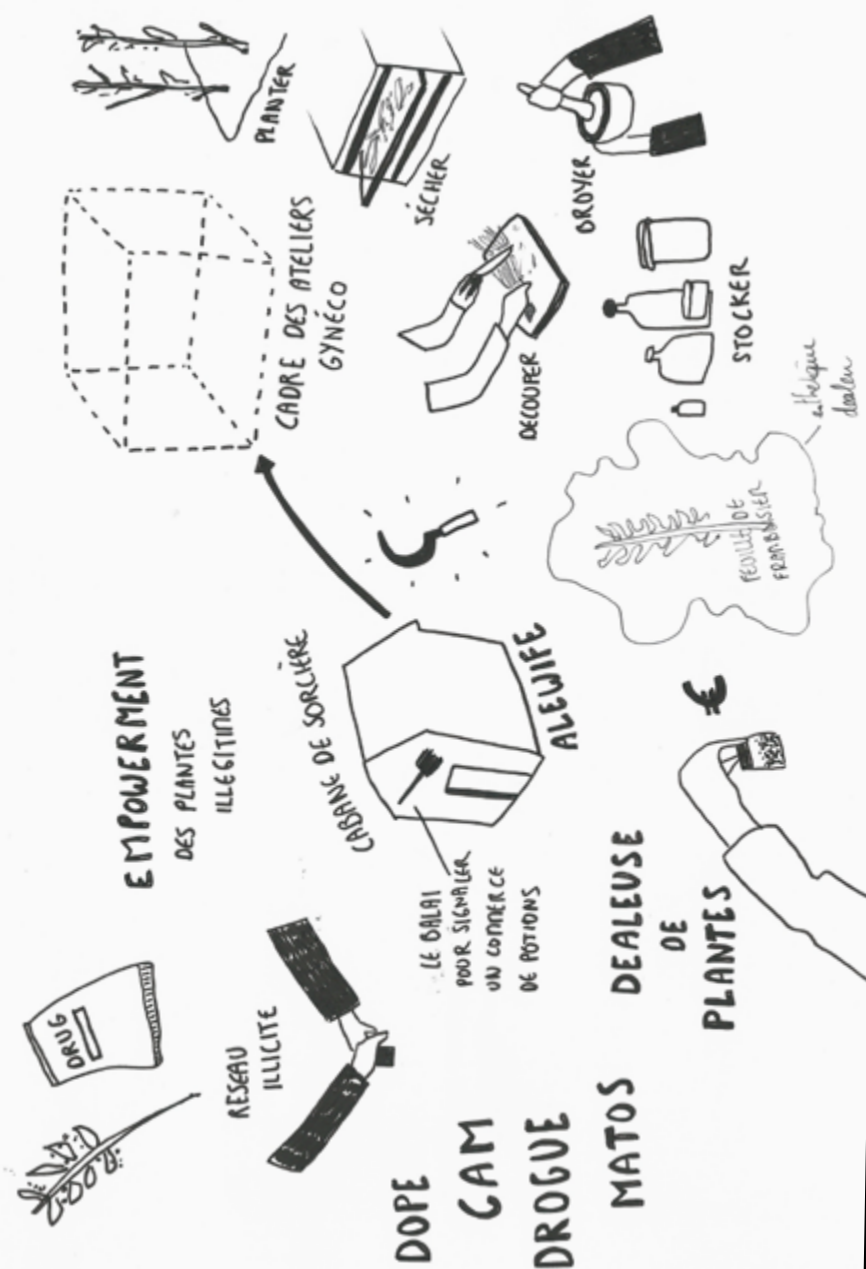 DRUG
RESEAU
ILLICITE
DOPE
CAM
DROGUE
MATOS
EMPOWERMENT
DES PLANTES
ILLEGITIMES
CABANE DE SORCIÈRE
ALEWIFE
LE BALAI
POUR SIGNALER
UN COMMERCE
DE POTIONS
DEALEUSE
DE
PLANTES
€
CADRE DES ATELIERS
GYNÉCO
PLANTER
SÉCHER
DECOUPER
BROYER
STOCKER
FEUILLE DE
FRAMBOISIER
esthétique
dealeur